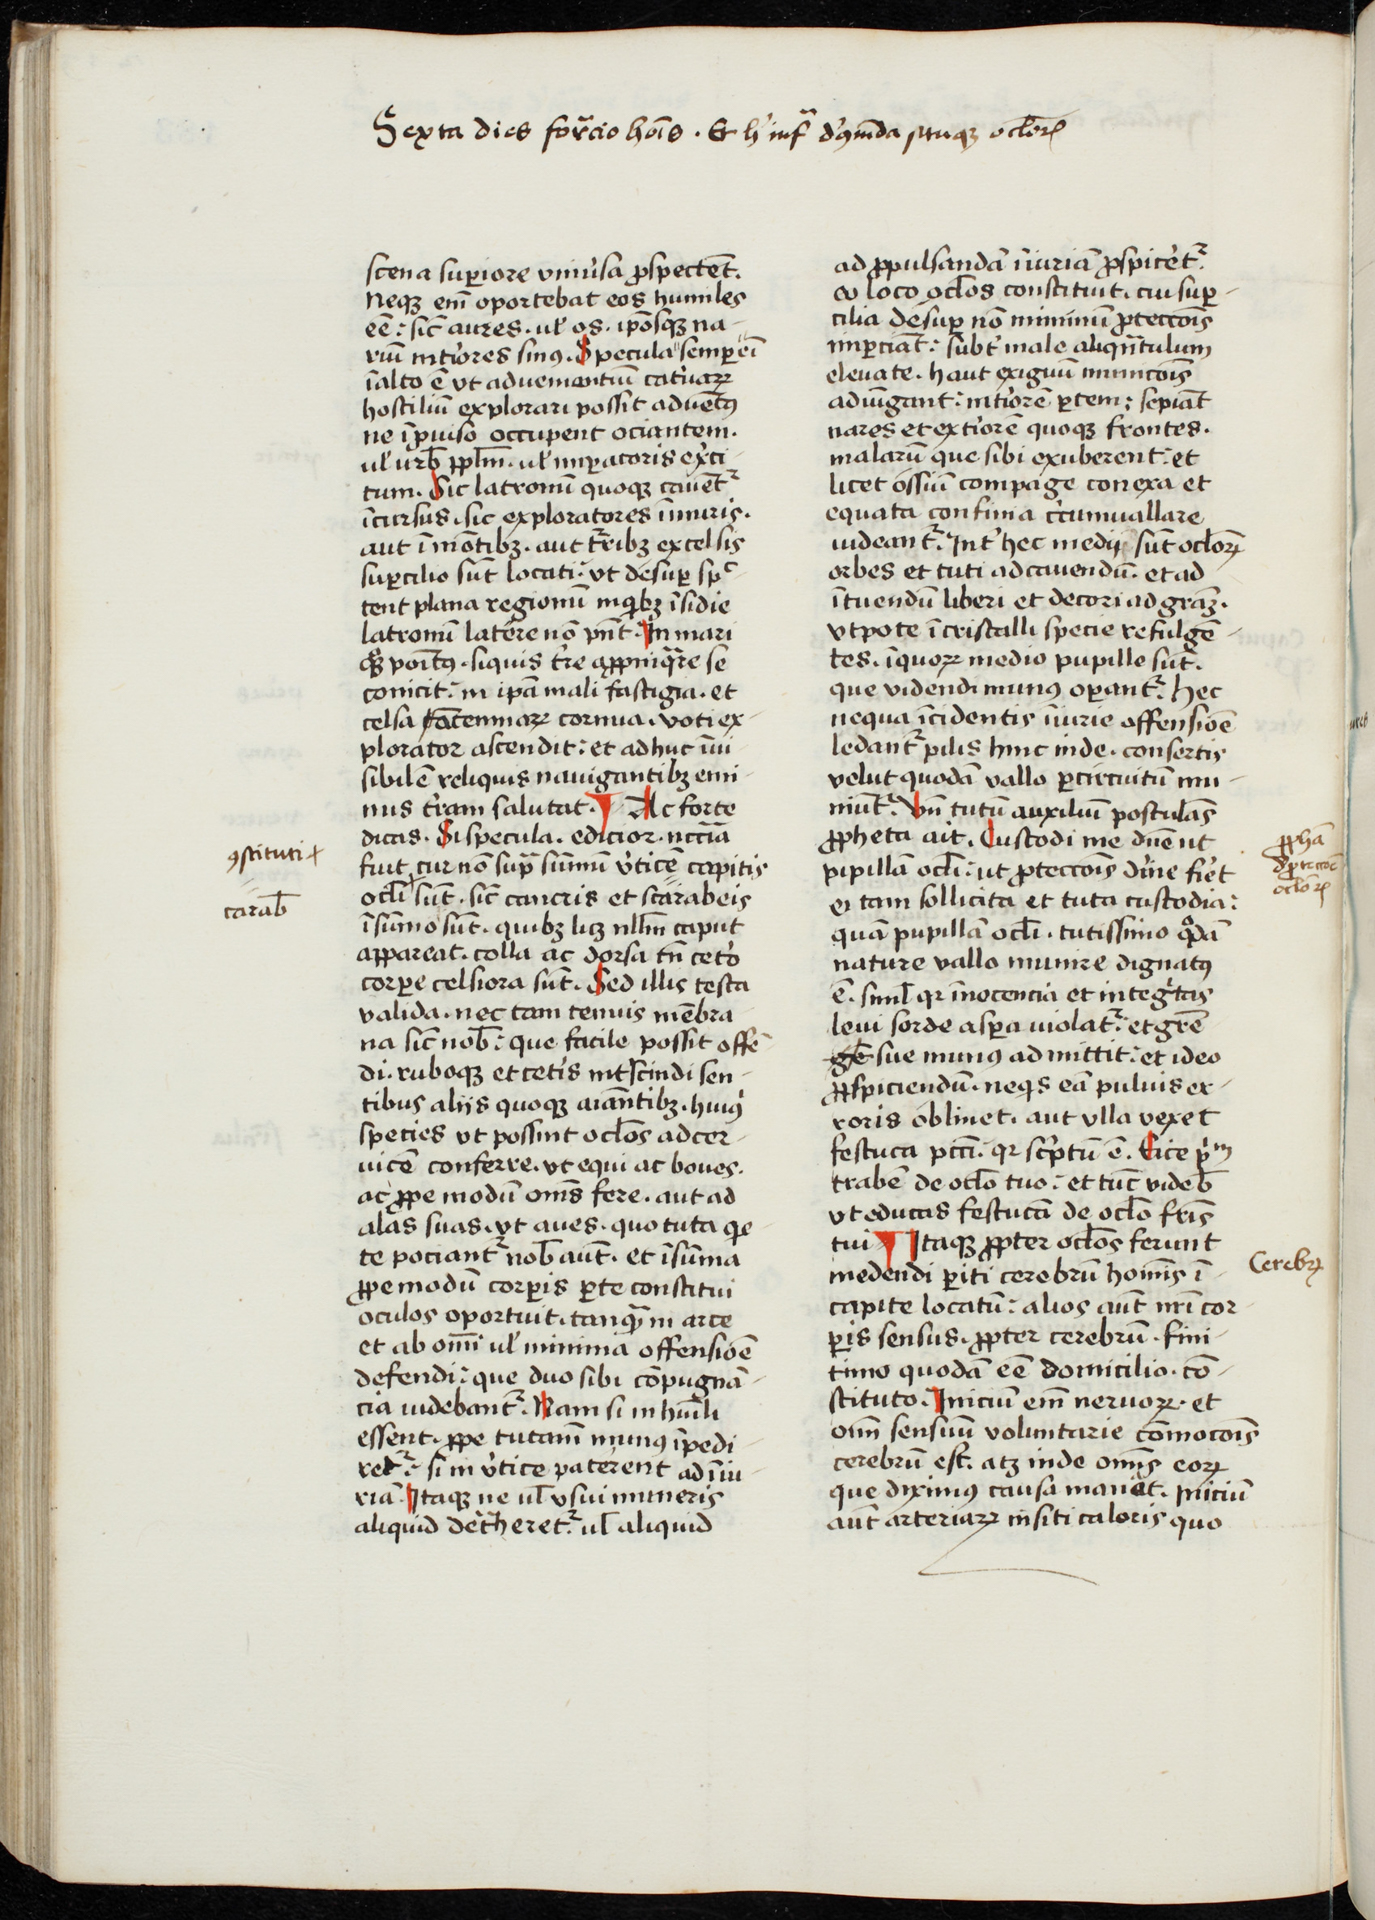 Sexta dies for̄cio hōis . Et h' inf̄ d' ꝯmēda situqꝫ oclōꝝ
scena suꝑiore vniu'sa ꝓspectēt.
Neqꝫ em̄ oportebat eos humiles
eē : sic̄ aures . ul' os . ipōsqꝫ na-
riū int'iores sinus . Specula semper ei
ī alto ē vt aduemantiū cat'uaꝝ
hostiliū explorari possit aduētꝯ
ne īꝓuiso occupent ociantem .
ul' urb̄ ppl̄m . ul' imꝑatoris ex'ci-
tum . Sic latronū quoqꝫ cauent᷑
īcursus . sic exploratores ī muris .
aut ī mōtibꝫ . aut t'ribꝫ excelsis
suꝑcilio sūt locati : vt desuꝑ spc-
tent plana regionū inqibꝫ īsidie
latronū lat'e nō pn̄t . In mari
qꝫ poītꝯ . siquis t're aꝓpinq̄re se
conicit : in ipā mali fastigia . et
celsa ātennaꝝ cornua . voti ex-
plorator ascendit : et adhuc īui-
sibilē reliquis nauigantibꝫ emi-
nus t'ram salutat . ¶ Ac forte
dicas . Si specula . edicior . nccīa
fuit cur nō supra sūmū v'ticē capitis
ocl̄i sūt . sic̄ cancris et scarabeis
ī sūmo sūt . quibꝫ licꝫ nll̄m caput
appareat . colla ac dorsa tn̄ cet'o
corꝑe celsiora sūt . Sed illis testa
valida . nec tam tenuis mēbra-
na sic̄ nob̄ : que facile possit offē-
di . ruboqꝫ et cet'is int'scindi sen-
tibus aliis quoqꝫ aiāntibꝫ . huiꝯ
species vt possint ocl̄os ad cer-
uicē conferre . vt equi ac boues .
ac ꝓpe modū om̄s fere . aut ad
alas suas . vt aues . quo tuta qie-
te pociant᷑ nob̄ aūt . et ī sūma
ꝓpe modū corꝑis ꝑte constitui
oculos oportuit . tanqꝫ in arce
et ab om̄i ul' minima offensiōe
defendi : que duo sibi cōpugnā-
cia uidebant᷑ . Nam si in hūili
essent . ꝓpe tutam̄ munꝯ īpedi-
ret᷑ : si in v'tice pat'erent ad īiu-
riā . Itaqꝫ ne ul' vsui muneris
aliquid det'heret᷑ . ul' aliquid
ꝯstituti
carab̄
ad ꝓpulsandā iniuriā ꝓspicēt᷑
eo loco ocl̄os constituit . cui suꝑ-
cilia desuꝑ nō miminū ꝓteccōis
imꝑciāt : subt' male aliqn̄tulum
eleuate . haut exiguū municōis
adiūgant : int'iorē ꝑtem : sepiāt
nares et ext'iorē quoqꝫ frontes .
malarū que sibi exuberent : et
licet ossiū compage conexa et
equata confinia c'cumuallare
uideant᷑ . Int' hec medij sūt oclōꝝ
orbes et tuti ad cauendū . et ad
ītuendū liberi et decori ad grām .
vt pote ī cristalli specie refulgē-
tes . ī quoꝝ medio pupille sūt .
que videndi munꝯ oꝑant᷑ . hec
nequa īcidentis iniurie offensiōe
ledant᷑ pilis hinc inde . consertis
velut quodā vallo ꝑ circuitū mu-
niunt᷑ . Vn̄ tutū auxiliū postulās
ꝓpheta ait . Custodi me dn̄e ut
pupillā ocl̄i : ut ꝓteccōis d'ine fiet
ei tam sollicita et tuta custodia :
quā pupillā ocl̄i . tutissimo qodā
nature vallo munire dignatꝯ
ē . siml' qr inocencia et integ'tas
leui sorde asꝑa violat᷑ : et grē
sue munꝯ admittit : et ideo
ꝓspiciendū . neqs eā puluis er-
roris oblinet . aut vlla vexet
festuca pccī . qr sc'ptū ē . Eice pm
trabē de oclō tuo : et tūc videb̄
vt educas festucā de oclō fr̄is
tui ¶ Itaqꝫ ꝓpter ocl̄os ferunt
medendi ꝑiti cerebrū homīs ī
capite locatū : alios aūt nr̄i cor-
ꝑis sensus . ꝓpter cerebrū . fini-
timo quodā eē domicilio . cō-
stituto . Iniciū em̄ neruoꝝ . et
om̄ sensuū voluntarie cōmocōis
cerebrū est . atꝫ inde om̄is eoꝝ
que diximꝯ causa manat . Iniciū
aūt arteriaꝝ insiti caloris quo
ꝓphā
d' ꝓteccōe
oclōꝝ
Cerebꝝ